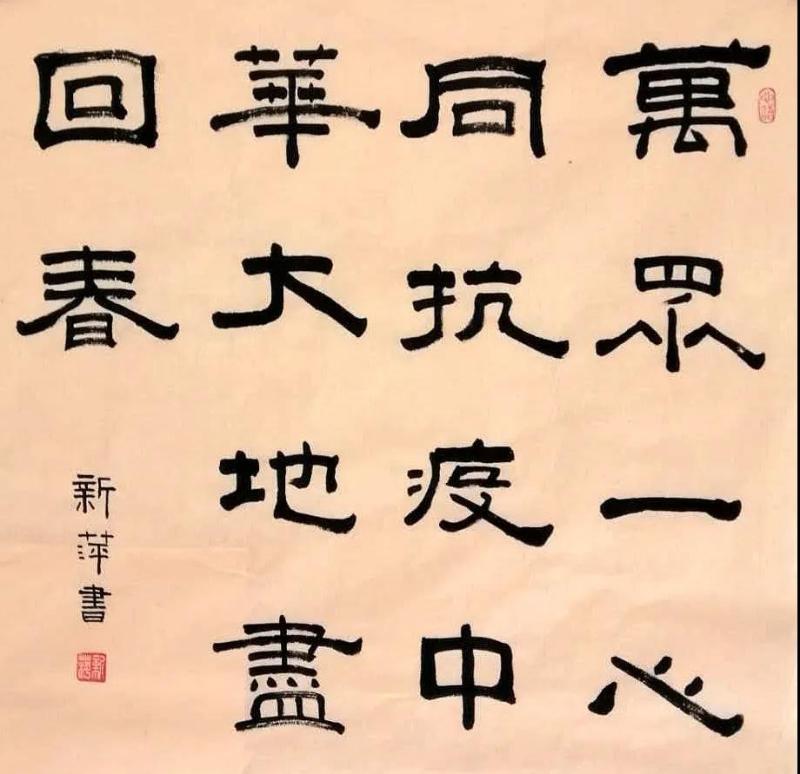 萬眾一心
同抗疫中
華大地盡
回春
新萍書